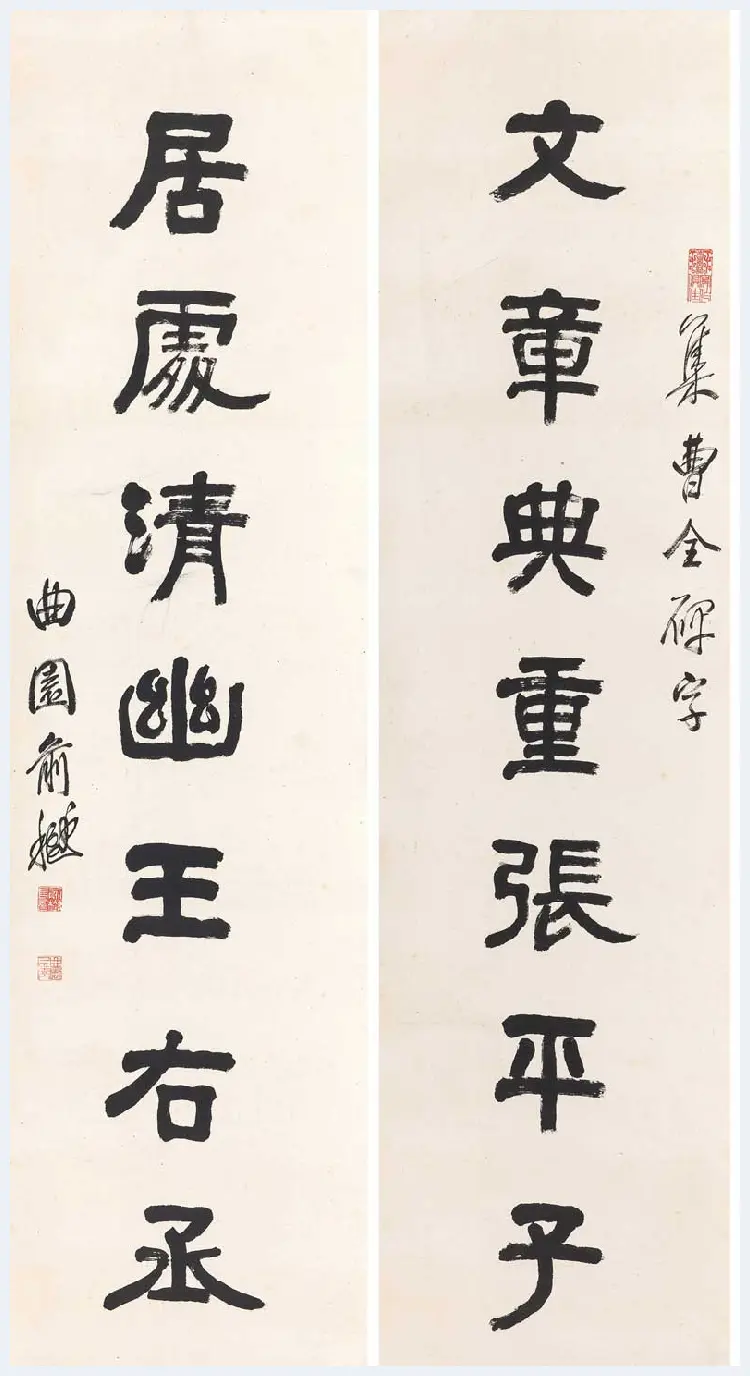 集曹全碑字
文章典重張平子
居處清幽王右丞
曲園俞樾